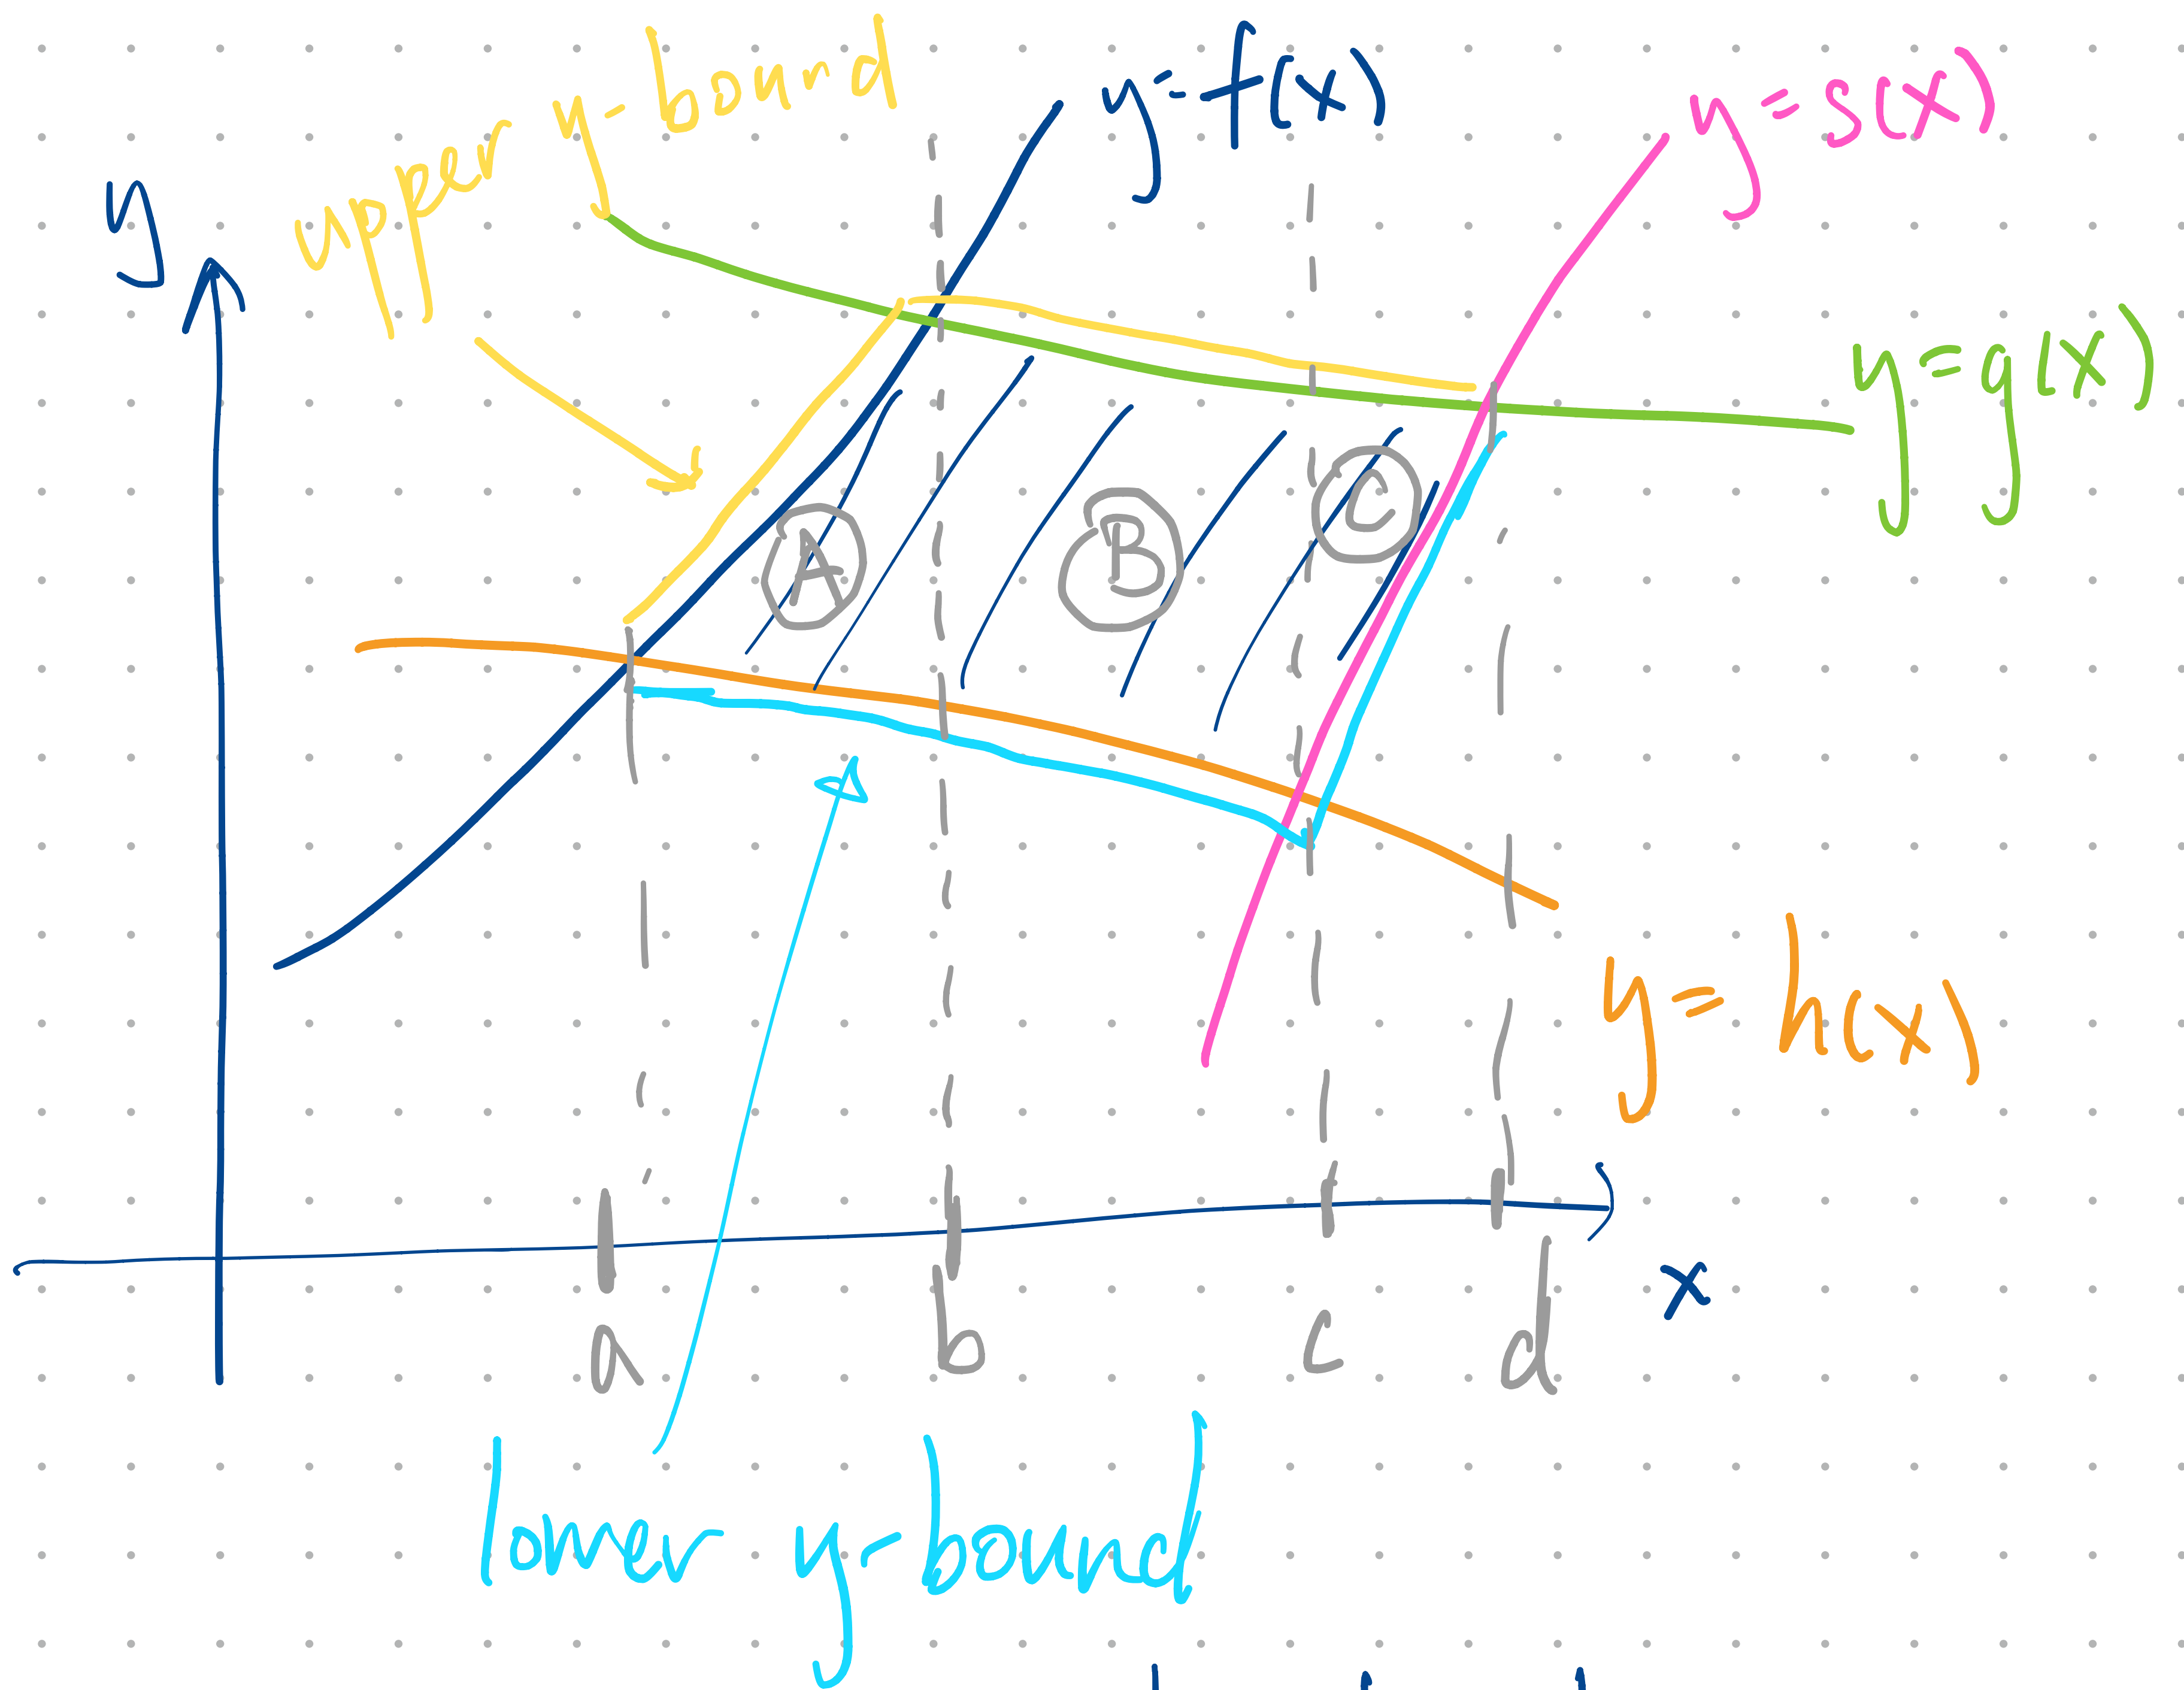 upper y-bound
y = f(x)
y = s(x)
y
y = g(x)
A
B
C
y = h(x)
a
b
c
d
x
lower y-bound